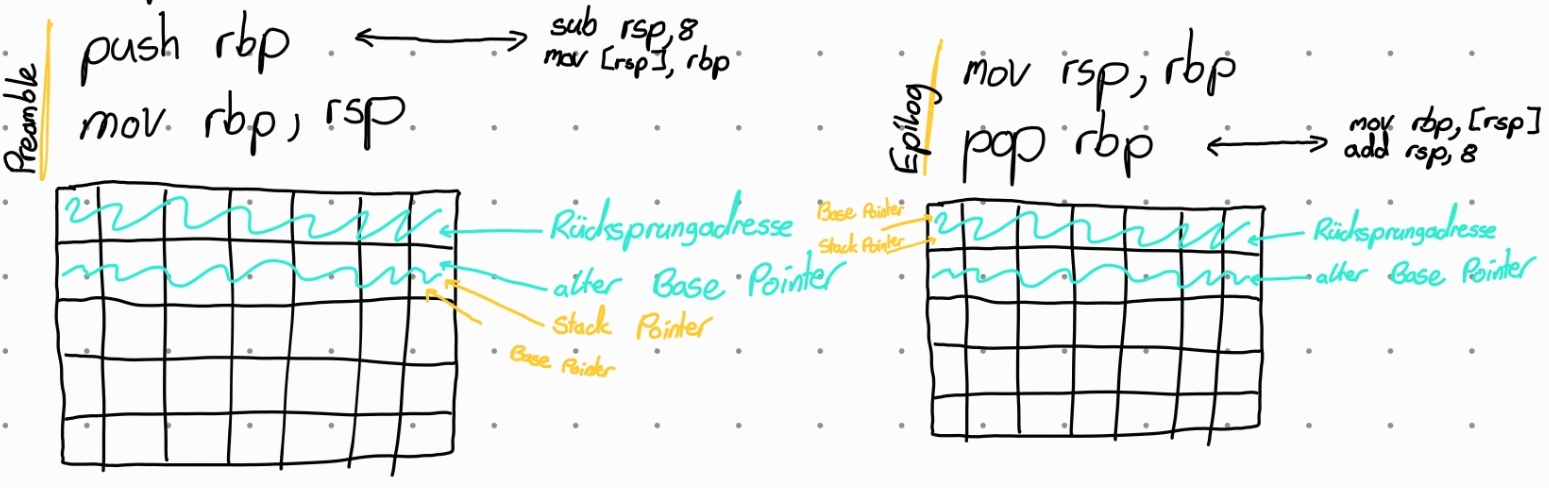 Preamble
push rbp
mov rbp, rsp
sub rsp, 8
mov [rsp], rbp
Rücksprungadresse
alter Base Pointer
Stack Pointer
Base Pointer
Epilog
mov rsp, rbp
pop rbp
mov rbp, [rsp]
add rsp, 8
Base Pointer
Stack Pointer
Rücksprungadresse
alter Base Pointer